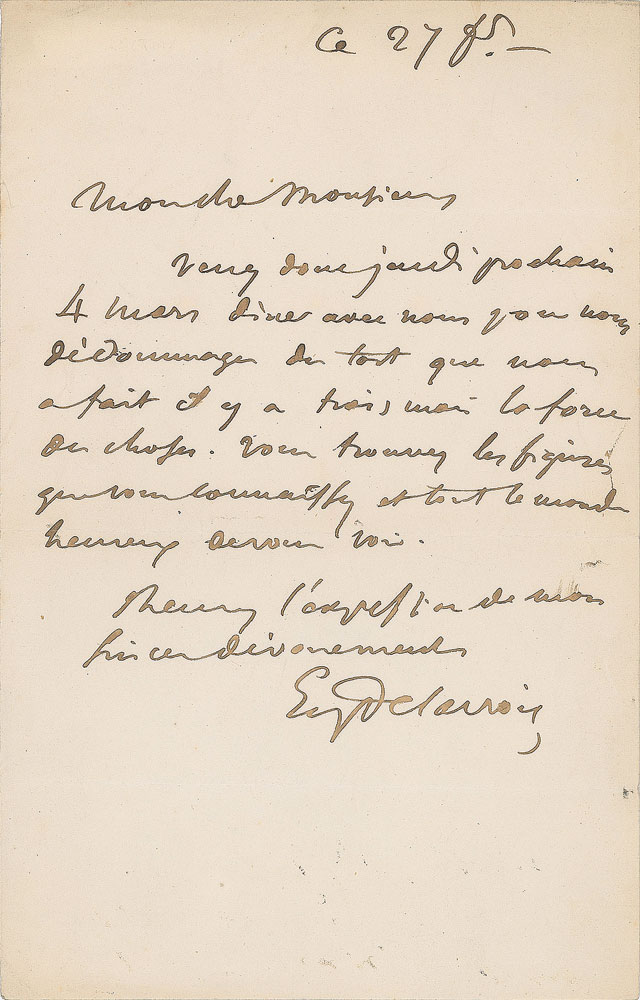 Ce 27 fr.—
Mon cher Monsieur
Venez donc jeudi prochain
4 mars dîner avec nous pour nous
dédommager du tort que nous
a fait il y a trois mois la force
des choses. Vous trouverez les figures
que vous connaissez et tout le monde
heureux de vous voir.
l'expression de mon
sincère dévouement
Eug Delacroix